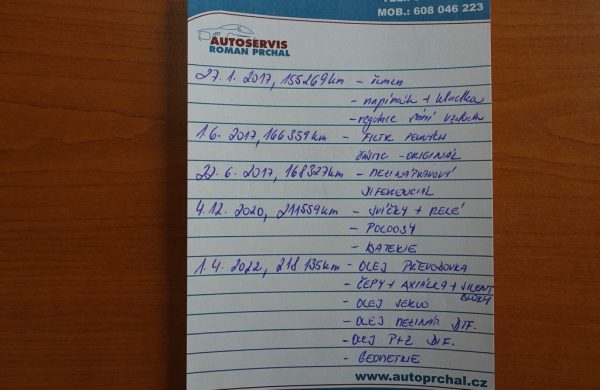 MOB.: 608 046 223
AUTOSERVIS
ROMAN PRCHAL
27. 1. 2017, 155269km - řemen
- napínák + kladka
- regulace
1. 6. 2017, 166359km - FILTR PEVNÝCH
ČÁSTIC - ORIGINÁL
22. 6. 2017, 168327km - MEZINÁPRAVOVÝ
DIFERENCIÁL
4. 12. 2020, 211559km - SVÍČKY + RELÉ
- POLOOSY
- BATERIE
1. 4. 2022, 218 135km - OLEJ PŘEVODOVKA
- ČEPY + AXIÁLKA + SILENT
BLOKY
- OLEJ SERVO
- OLEJ MEZINÁP. DIF.
- OLEJ P+Z DIF.
- GEOMETRIE
www.autoprchal.cz